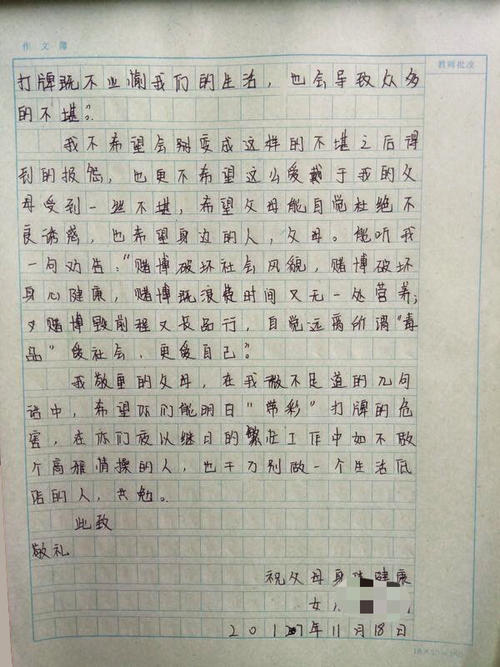 作文簿
教师批准
打牌既不业澜我们的生活，也会导致众多
的不堪”。
我不希望会到变成这样的不堪之后得
到的报怨，也更不希望这么爱戴于我的父
母受到一丝不堪，希望父母能自觉杜绝不
良诱惑，也希望身边的人，父母。能听我
一句劝告：“赌博破坏社会风貌，赌博破坏
身心健康，赌博既浪费时间又无一处营养；
又赌博毁前程又长品行，自觉远离所谓“毒
品”爱社会，更爱自己”。
我敬重的父母，在我微不足道的几句
话中，希望你们能明白“带彩”打牌的危
害，在你们夜以继日的繁忙工作中如不做
个高雅情操的人，也千万别做一个生活低
俗的人，共勉。
此致
敬礼
祝父母身体健康
女
2017年11月18日